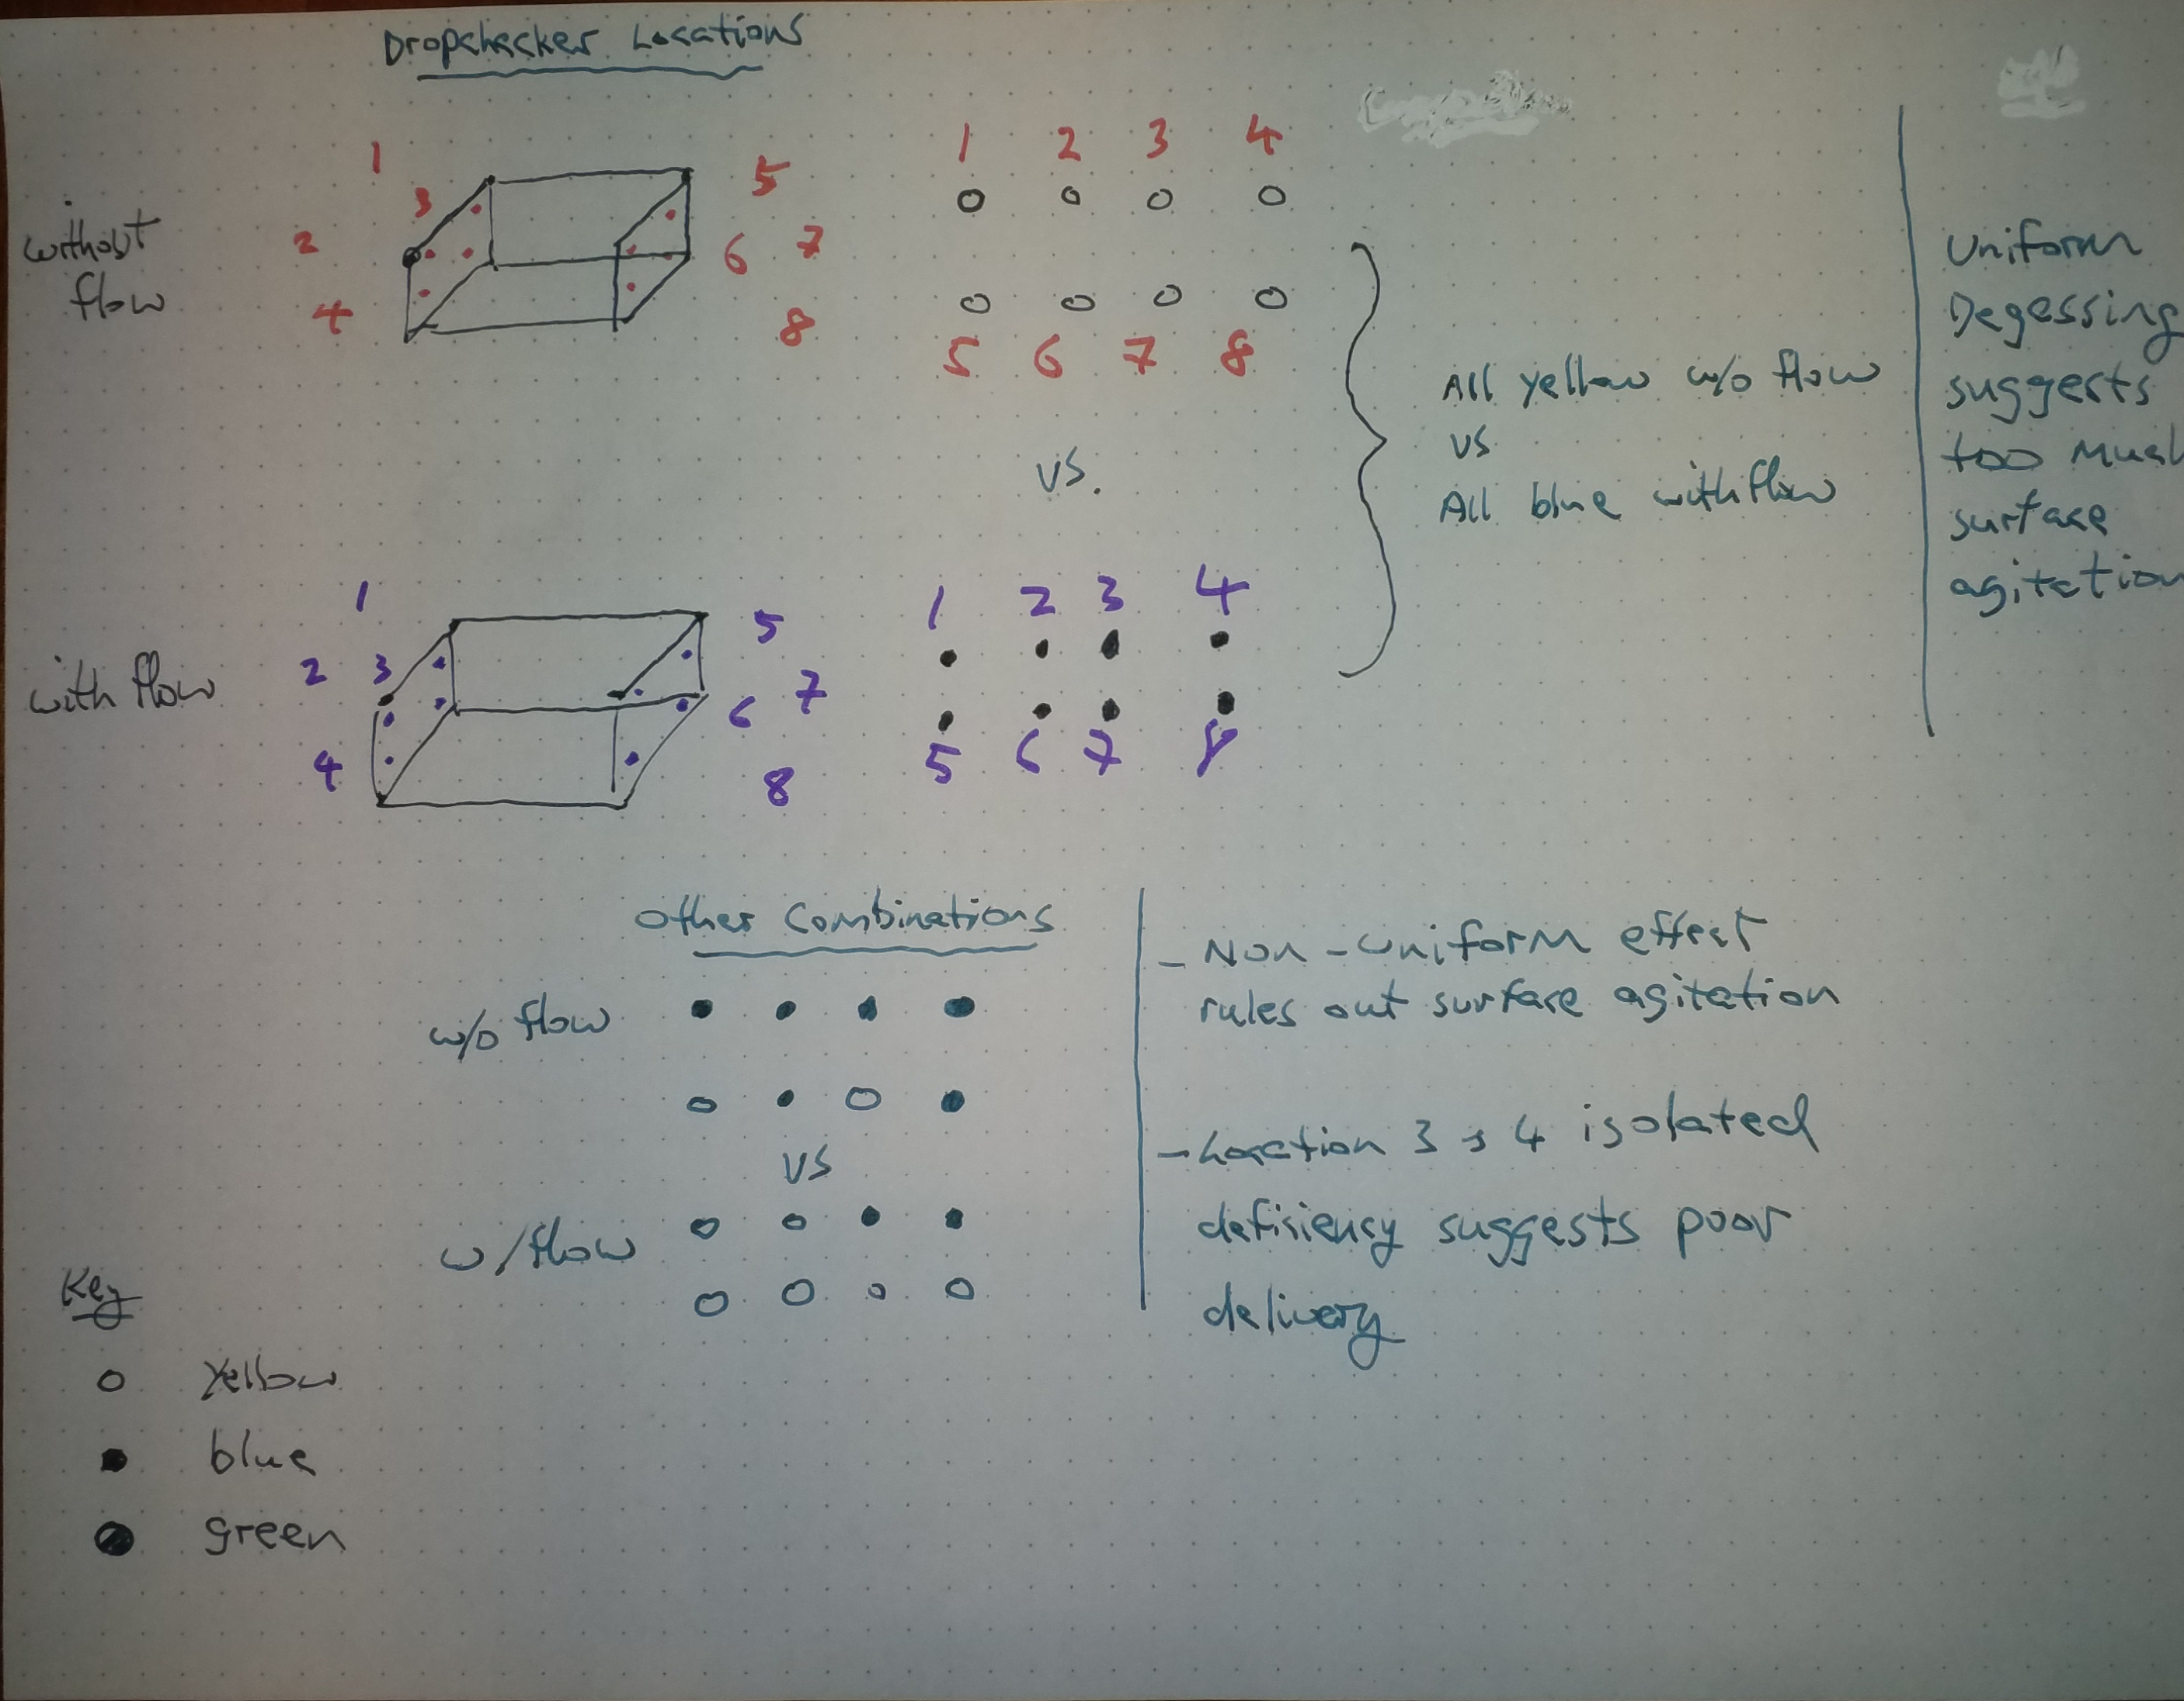 Dropchecker Locations
1 2 3 4
1 5
3
2 6 7
without
flow
4 8
5 6 7 8
All yellow w/o flow
vs
All blue with flow
Uniform
Degessing
suggests
too Much
surface
agitation
vs.
1 2 3 4
1 5
2 3 7
with flow
6
4 8
5 6 7 8
Other Combinations
w/o flow
vs
w/flow
- Non-uniform effect
rules out surface agitation
- Location 3 & 4 isolated
defisiency suggests poor
delivery
Key
Yellow
blue
green